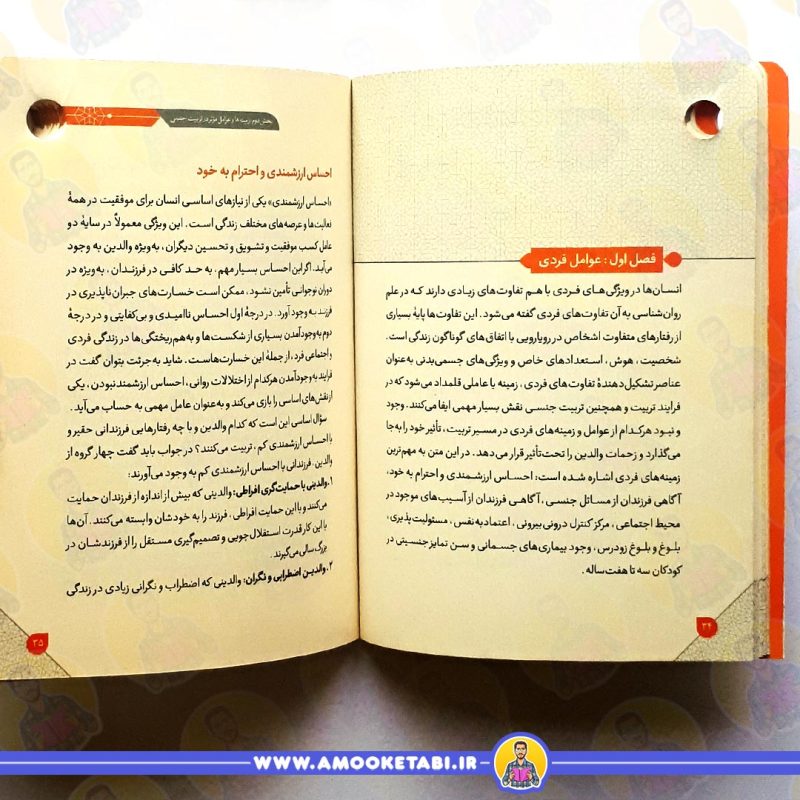 فصل اول : عوامل فردی
انسان‌ها در ویژگی‌های فردی با هم تفاوت‌های زیادی دارند که در علم
روان‌شناسی به آن تفاوت‌های فردی گفته می‌شود. این تفاوت‌ها پایهٔ بسیاری
از رفتارهای متفاوت اشخاص در رویارویی با اتفاق‌های گوناگون زندگی است.
شخصیت، هوش، استعدادهای خاص و ویژگی‌های جسمی‌بدنی به‌عنوان
عناصر تشکیل‌دهندهٔ تفاوت‌های فردی، زمینه یا عاملی قلمداد می‌شود که در
فرایند تربیت و همچنین تربیت جنسی نقش بسیار مهمی ایفا می‌کنند. وجود
و نبود هرکدام از عوامل و زمینه‌های فردی در مسیر تربیت، تأثیر خود را به‌جا
می‌گذارد و زحمات والدین را تحت‌تأثیر قرار می‌دهد. در این متن به مهم‌ترین
زمینه‌های فردی اشاره شده است: احساس ارزشمندی و احترام به خود،
آگاهی فرزندان از مسائل جنسی، آگاهی فرزندان از آسیب‌های موجود در
محیط اجتماعی، مرکز کنترل درونی‌بیرونی، اعتماد به نفس، مسئولیت‌پذیری،
بلوغ و بلوغ زودرس، وجود بیماری‌های جسمانی و سن تمایز جنسیتی در
کودکان سه تا هفت‌ساله.
۳۴
بخش دوم: زمینه‌ها و عوامل مؤثر در تربیت جنسی
احساس ارزشمندی و احترام به خود
«احساس ارزشمندی» یکی از نیازهای اساسی انسان برای موفقیت در همهٔ
فعالیت‌ها و عرصه‌های مختلف زندگی است. این ویژگی معمولاً در سایهٔ دو
عامل کسب موفقیت و تشویق و تحسین دیگران، به‌ویژه والدین به وجود
می‌آید. اگر این احساس بسیار مهم، به حد کافی در فرزندان، به‌ویژه در
دوران نوجوانی تأمین نشود، ممکن است خسارت‌های جبران‌ناپذیری در
فرزند به وجود آورد. در درجهٔ اول احساس ناامیدی و بی‌کفایتی و در درجهٔ
دوم به‌وجودآمدن بسیاری از شکست‌ها و به‌هم‌ریختگی‌ها در زندگی فردی
و اجتماعی فرد، از جملهٔ این خسارت‌هاست. شاید به‌جرئت بتوان گفت در
فرایند به‌وجودآمدن هرکدام از اختلالات روانی، احساس ارزشمندنبودن، یکی
از نقش‌های اساسی را بازی می‌کند و به‌عنوان عامل مهمی به حساب می‌آید.
سؤال اساسی این است که کدام والدین و با چه رفتارهایی فرزندانی حقیر و
با احساس ارزشمندی کم، تربیت می‌کنند؟ در جواب باید گفت چهار گروه از
والدین، فرزندانی با احساس ارزشمندی کم به وجود می‌آورند:
۱. والدینی با حمایت‌گری افراطی: والدینی که بیش از اندازه از فرزندان حمایت
می‌کنند و با این حمایت افراطی، فرزند را به خودشان وابسته می‌کنند. آن‌ها
با این کار قدرت استقلال‌جویی و تصمیم‌گیری مستقل را از فرزندشان در
بزرگ‌سالی می‌گیرند.
۲. والدین اضطرابی و نگران: والدینی که اضطراب و نگرانی زیادی در زندگی
۳۵
WWW.AMOOKETABI.IR